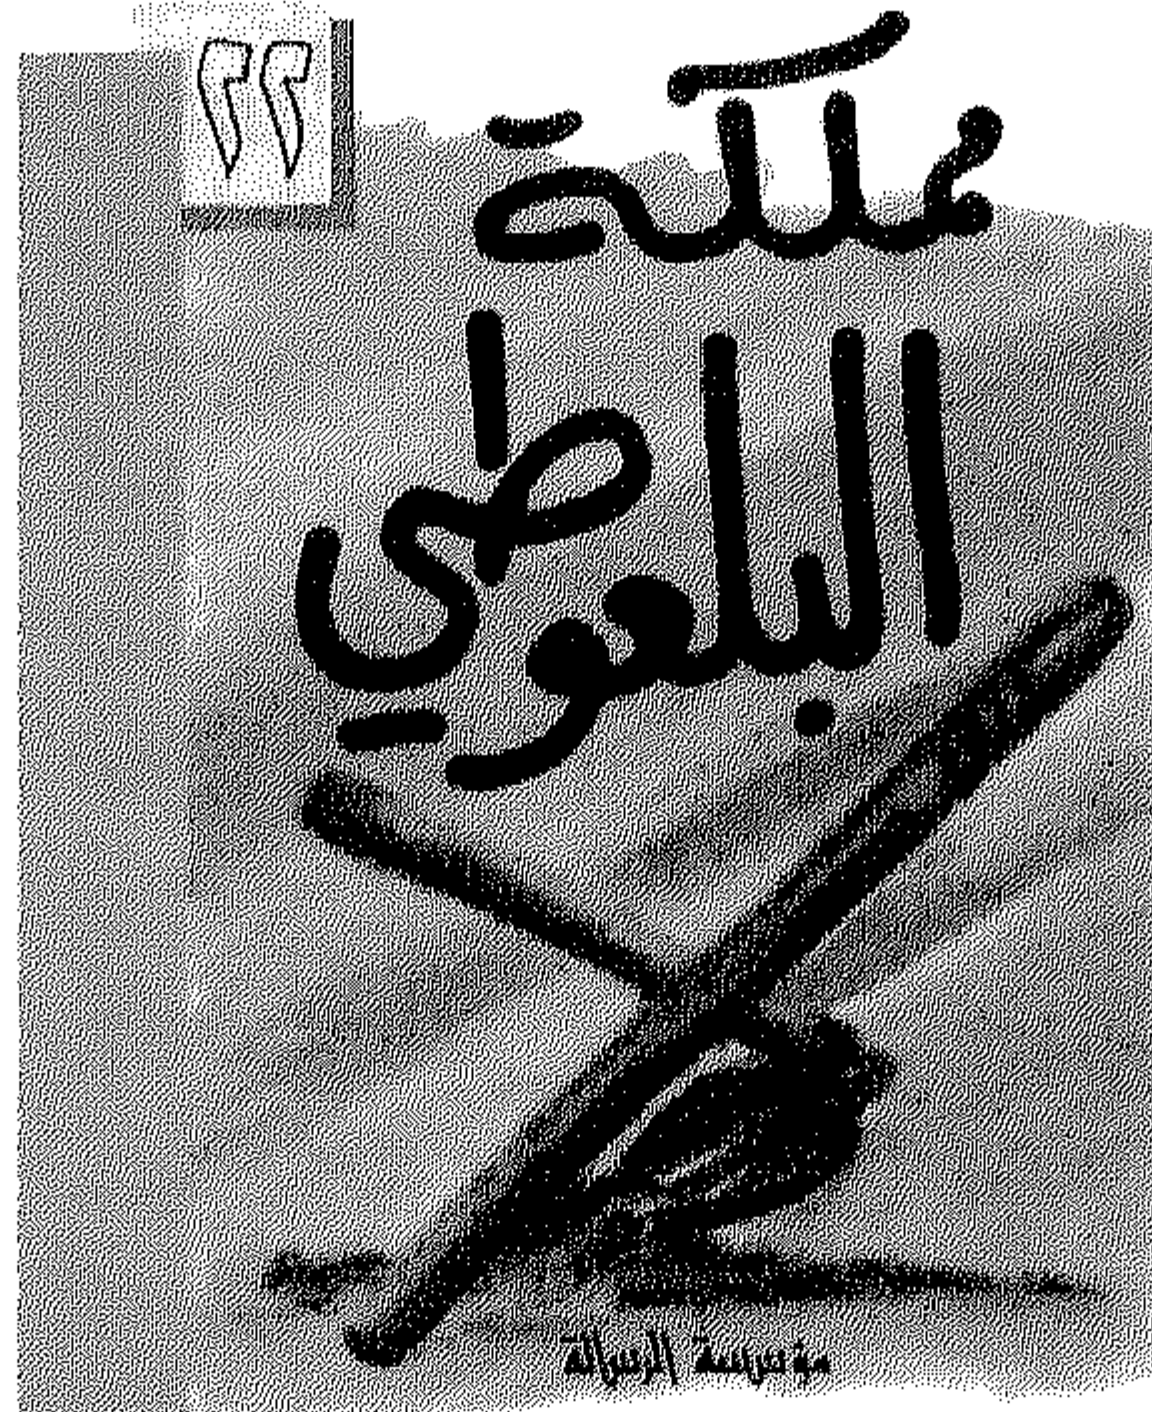 ٢٢
مملكة
البلعوطي
مؤسسة الرسالة